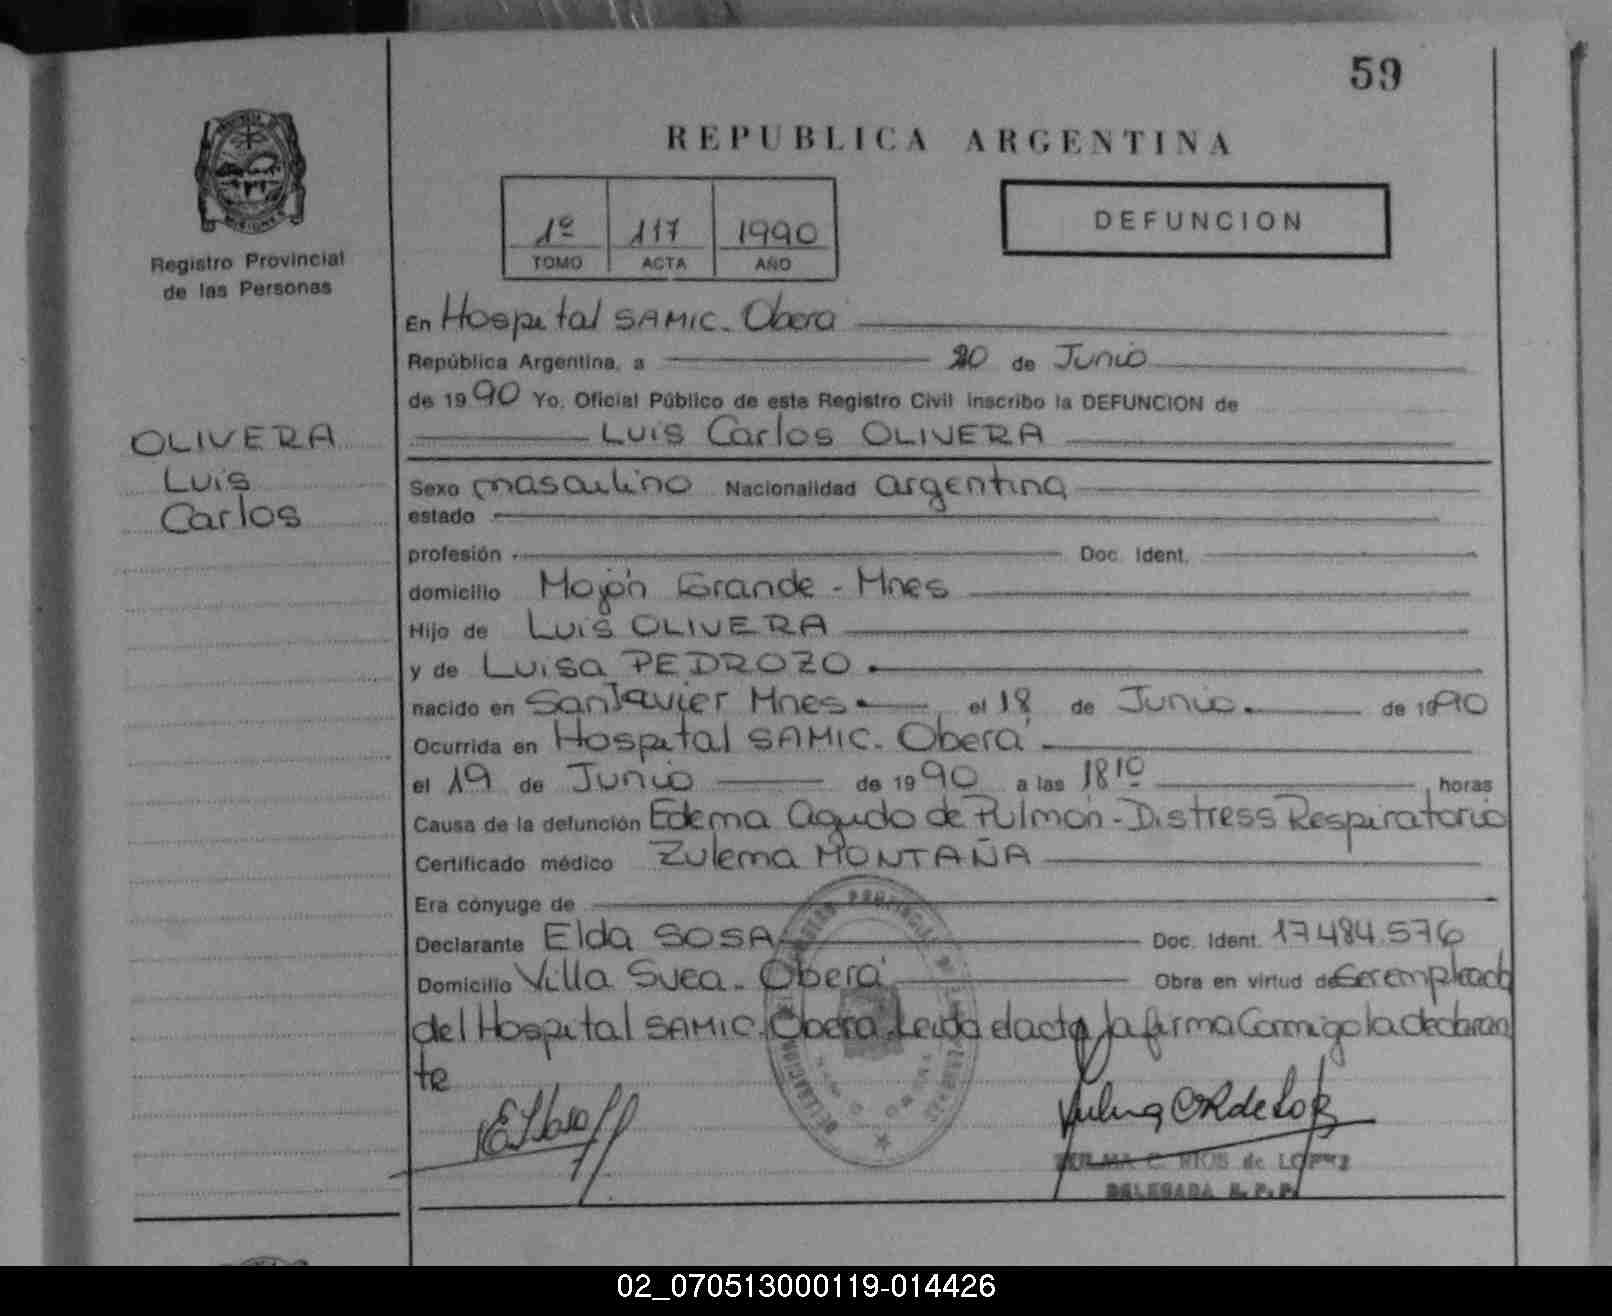 59
REPUBLICA ARGENTINA
1º 117 1990
TOMO ACTA AÑO
DEFUNCION
MISIONES
Registro Provincial
de las Personas
En Hospital SAMIC. Oberá
República Argentina, a 20 de Junio
de 1990 Yo, Oficial Público de este Registro Civil inscribo la DEFUNCION de
Luis Carlos OLIVERA
OLIVERA
Luis
Carlos
Sexo masculino Nacionalidad argentina
estado
profesión Doc. Ident.
domicilio Mojón Grande - Mnes
Hijo de Luis OLIVERA
y de Luisa PEDROZO.
nacido en San Javier Mnes. el 18 de Junio. de 1990
Ocurrida en Hospital SAMIC. Oberá
el 19 de Junio de 1990 a las 18 10 horas
Causa de la defunción Edema Agudo de Pulmón - Distress Respiratorio
Certificado médico Zulema MONTAÑA
Era cónyuge de
Declarante Elda SOSA Doc. Ident. 17.484.576
Domicilio Villa Svea - Oberá Obra en virtud de Ser empleada
del Hospital SAMIC. Oberá. Leída el acta, la firma Conmigo la declaran
te
ZULMA C. RIOS de LOPEZ
DELEGADA R. P. P.
02_070513000119-014426